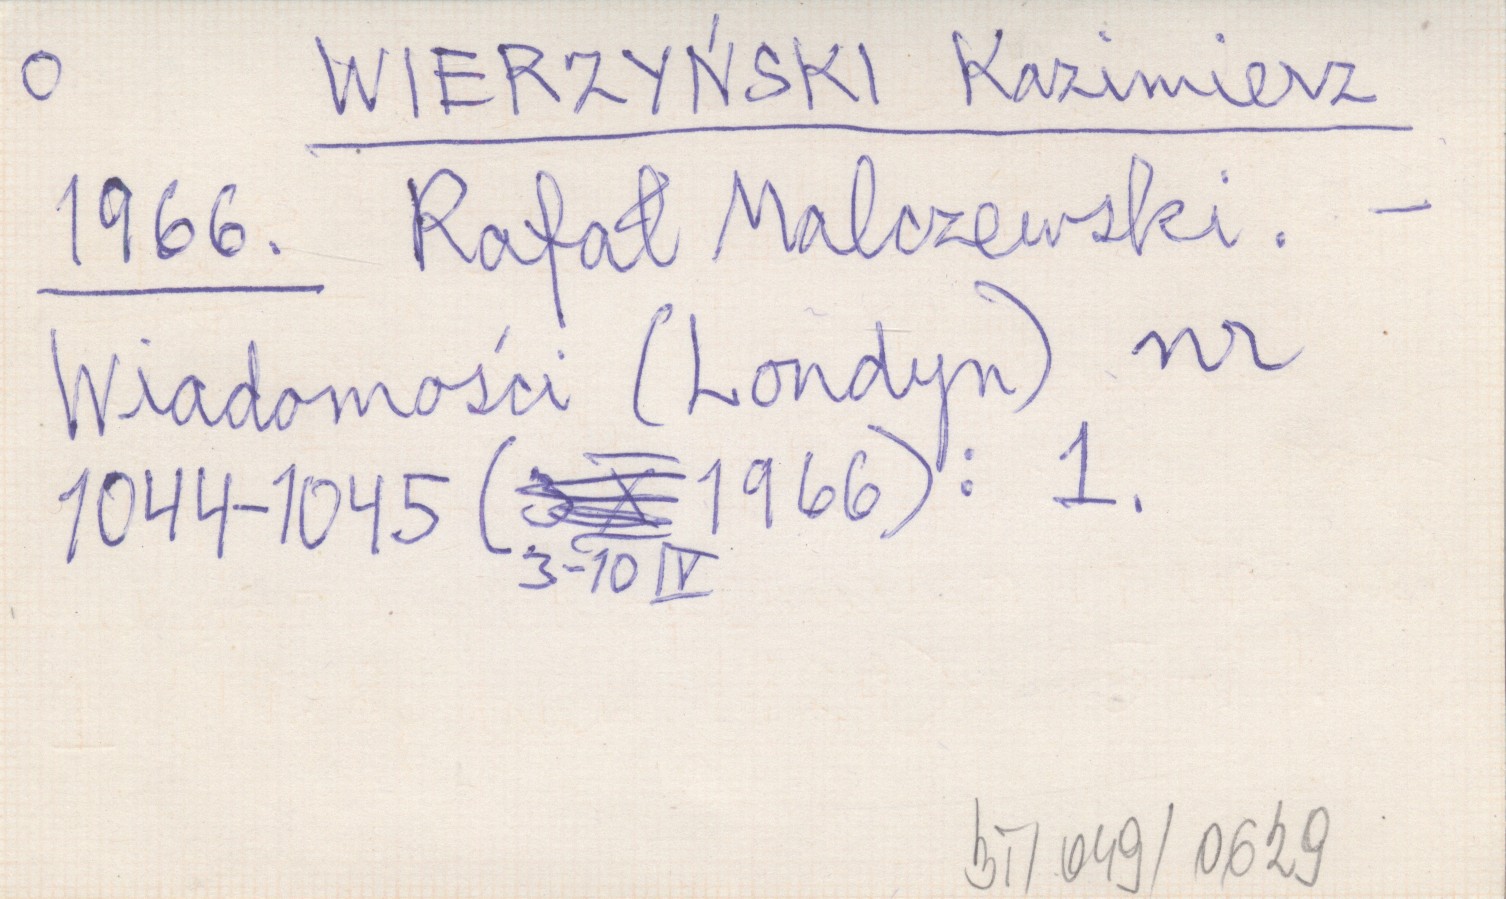 O WIERZYŃSKI Kazimierz
1966. Rafał Malczewski. –
Wiadomości (Londyn) nr
1044-1045 (1966): 1.
3-10 IV
049/0629